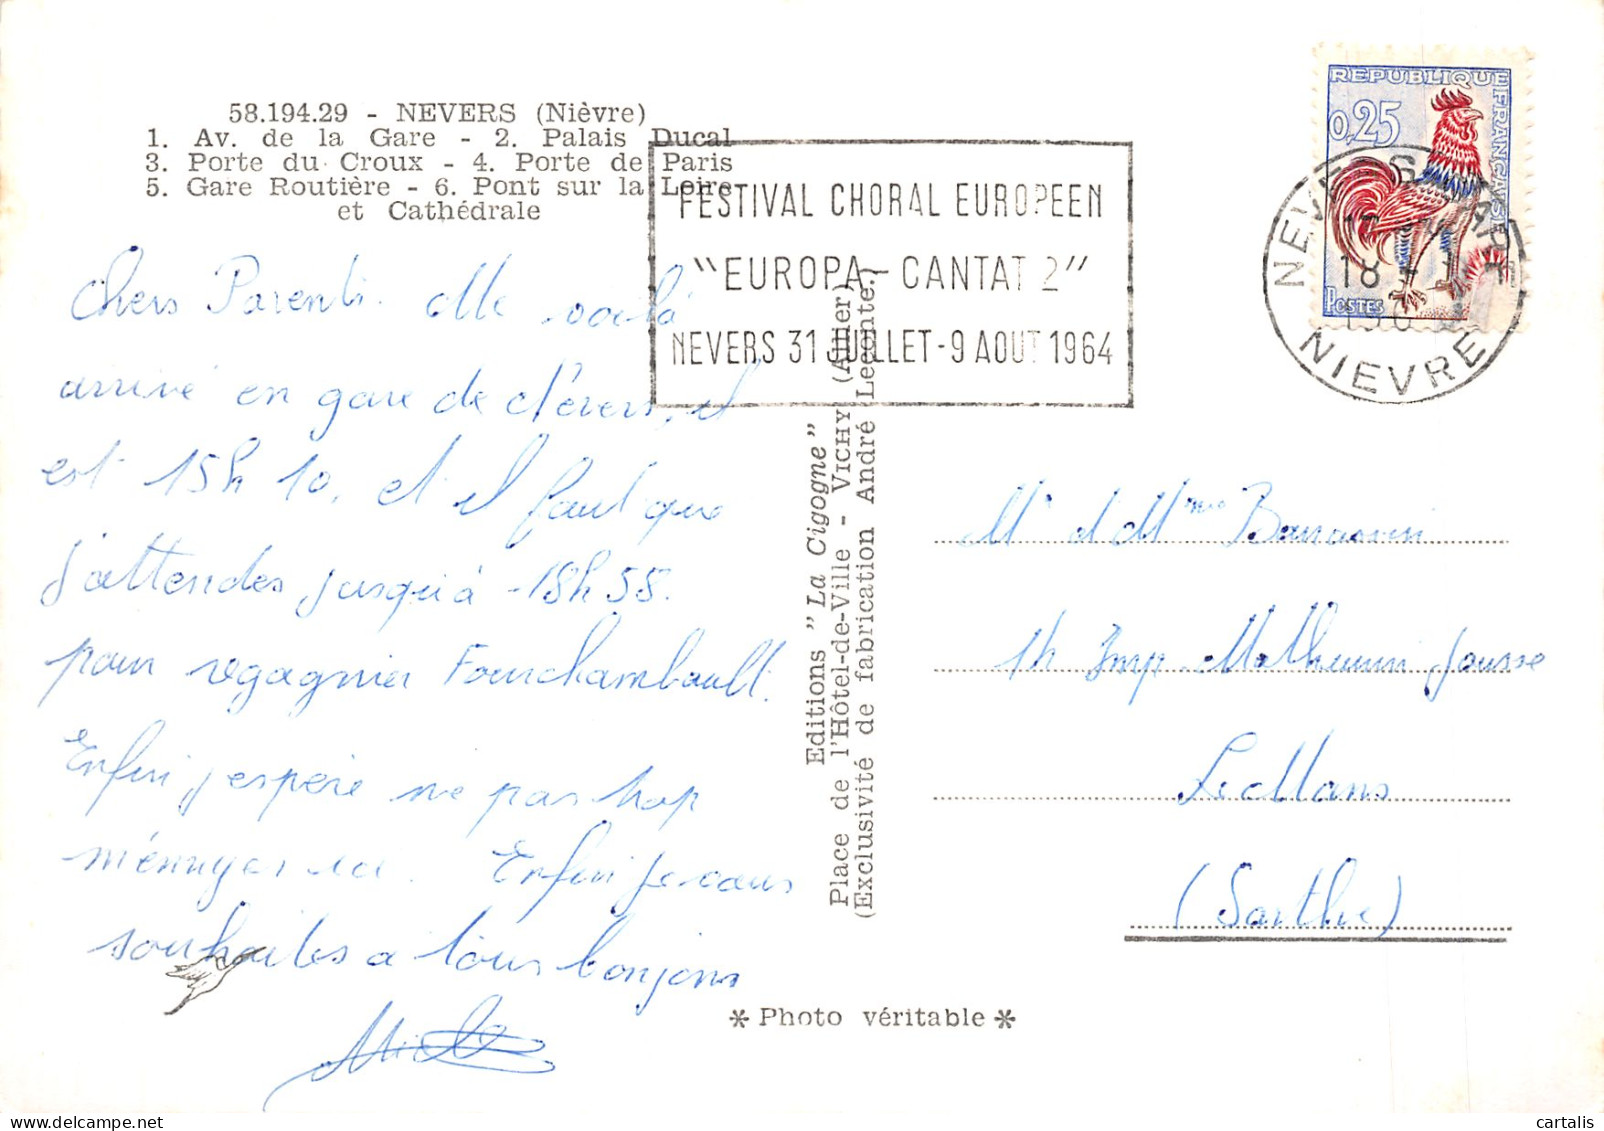 58.194.29 - NEVERS (Nièvre)
1. Av. de la Gare - 2. Palais Ducal
3. Porte du Croux - 4. Porte de Paris
5. Gare Routière - 6. Pont sur la Loire
et Cathédrale
FESTIVAL CHORAL EUROPEEN
"EUROPA - CANTAT 2"
NEVERS 31 JUILLET - 9 AOUT 1964
REPUBLIQUE FRANÇAISE
0,25
POSTES
NEVERS GARE
18
NIEVRE
Chers Parents. Me voilà
arrivé en gare de Nevers, il
est 15h 10, et il faut que
j'attendes jusqu'à 18h 58.
pour regagner Fourchambault.
Enfin j'espère ne pas trop
m'ennuyer ici. Enfin je vous
souhaites a tous bonjour
Editions "La Cigogne"
Place de l'Hôtel-de-Ville - VICHY (Allier)
(Exclusivité de fabrication André Leconte.)
Mr et Mme
14 Imp. Mathurin Jousse
Le Mans
(Sarthe)
* Photo véritable *
cartalis